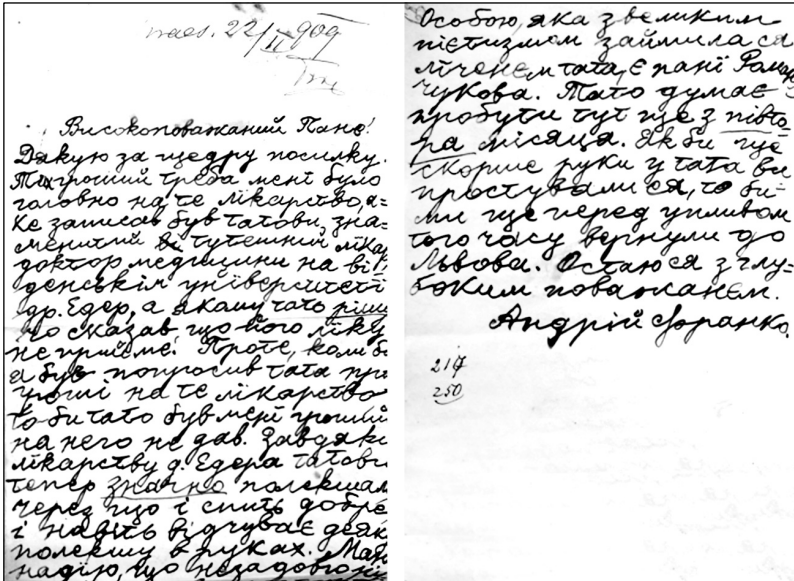 22/II 909
Високоповажаний Пане!
Дякую за щедру посилку.
Тих грошій треба мені було
головно на те лікарство, я-
ке записав був татови, зна-
менитий тутешний лікар
доктор медицини на ві-
денськім університеті
др. Едер, а якому тато рішу
чо сказав що його ліку
не прийме! Проте, коли б
я був попросив тата про
гроші на те лікарство
то би тато був мені грошій
на него не дав. Завдяки
лікарству д. Едера татови
тепер значно полекшал
через що і спить добре
і навіть відчуває деяк
полекшу в руках. Маю
надію, що незадовго
Особою, яка з великим
пієтизмом займила ся
ліченєм тата, є пані Роман
чукова. Тато думає
пробути тут ще з півто-
ра місяця. Як би ще
скорше руки у тата ви
простували ся, то би-
ми ще перед упливом
того часу вернули до
Львова. Остаю ся з глу-
боким поважанєм.
Андрій Франко.
217
250